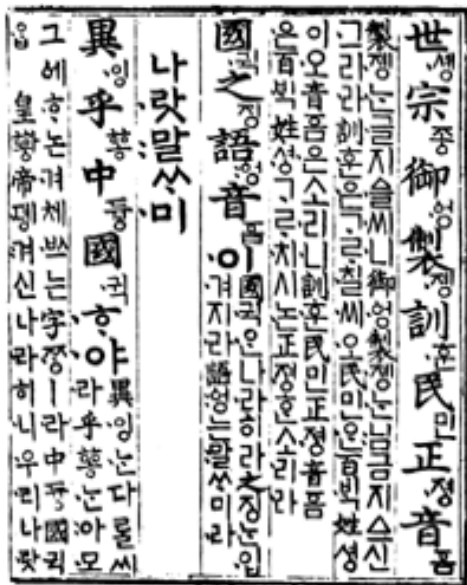 世솅宗종御엉製졩訓훈民민正졍音ᅙᅳᆷ
製졩ᄂᆞᆫ글지ᅀᅳᆯ씨니御엉製졩ᄂᆞᆫ님금지ᅀᅳ샨
그리라訓훈은ᄀᆞᄅᆞ칠씨오民민ᄋᆞᆫ百ᄇᆡᆨ姓셩
이오音ᅙᅳᆷ은소리니訓훈民민正졍音ᅙᅳᆷ
은百ᄇᆡᆨ姓셩ᄀᆞᄅᆞ치시논正졍ᄒᆞᆫ소리라
國귁之징語엉音ᅙᅳᆷ이
國귁ᄋᆞᆫ나라히라之징ᄂᆞᆫ입
겨지라語엉는말ᄊᆞ미라
나랏말ᄊᆞ미
異잉乎ᅘᅩᆼ中듕國귁ᄒᆞ야
異잉ᄂᆞᆫ다ᄅᆞᆯ씨
라乎ᅘᅩᆼᄂᆞᆫ아모
그ᅌᅦᄒᆞ논겨체ᄡᅳ는字ᄍᆞᆼㅣ라中듕國귁
ᄋᆞᆫ皇ᅘᅪᆼ帝뎽겨신나라히니우리나랏